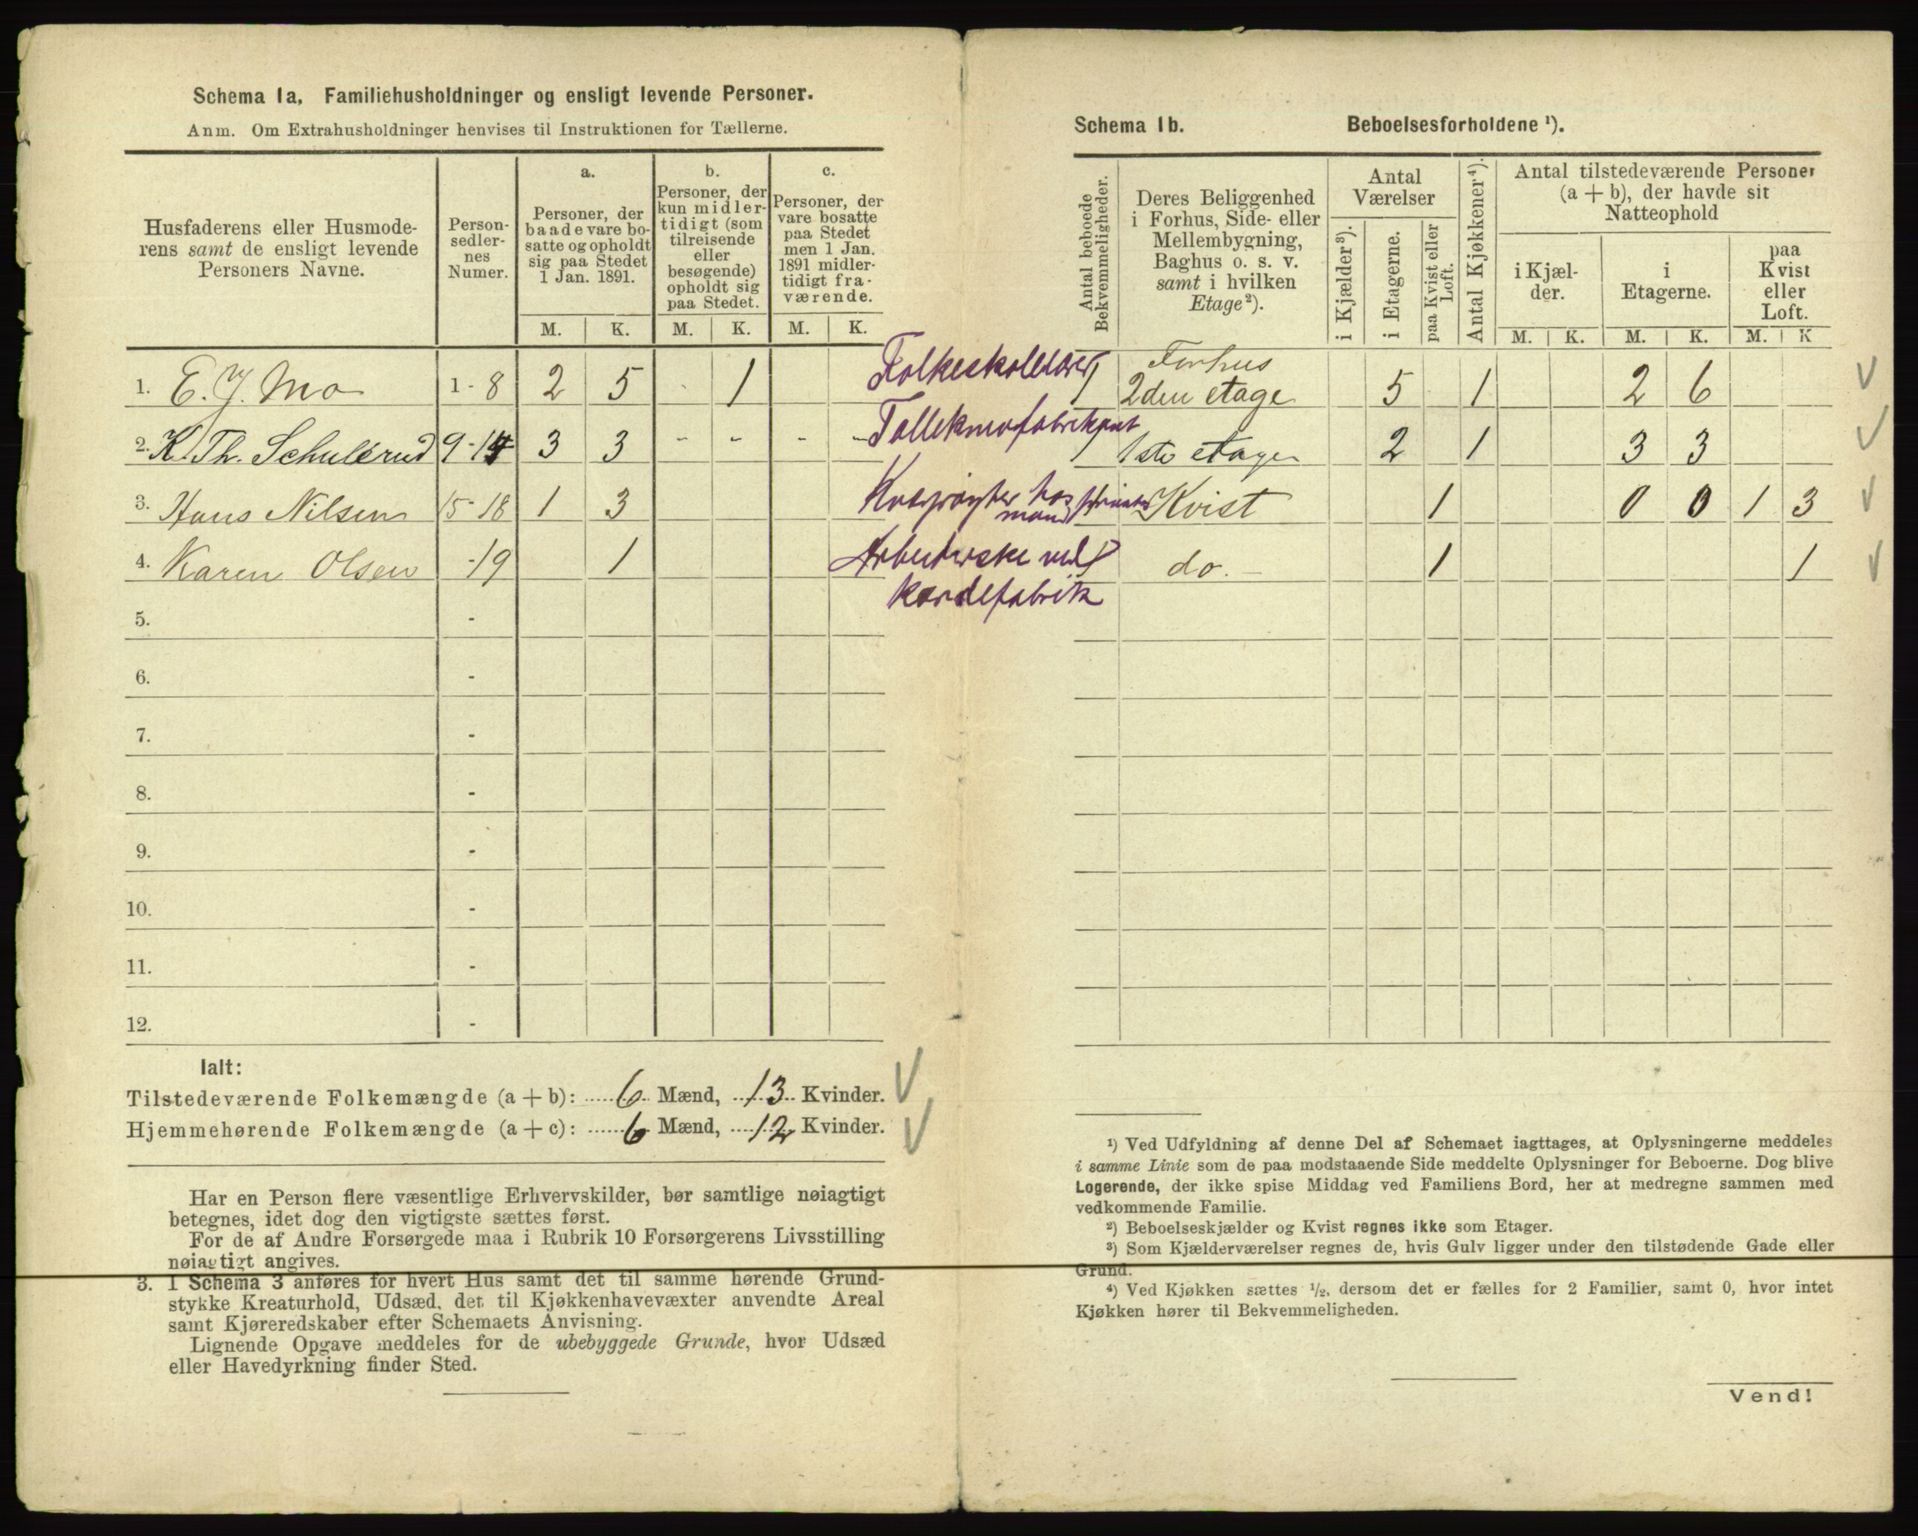 Schema 1a. Familiehusholdninger og ensligt levende Personer.
Anm. Om Extrahusholdninger henvises til Instruktionen for Tællerne.
Husfaderens eller Husmoderens samt de ensligt levende Personers Navne.
Personsedlernes Numer.
a. Personer, der baade vare bosatte og opholdt sig paa Stedet 1 Jan. 1891.
b. Personer, der kun midlertidigt (som tilreisende eller besøgende) opholdt sig paa Stedet.
c. Personer, der vare bosatte paa Stedet men 1 Jan. 1891 midlertidigt fraværende.
M. K. M. K. M. K.
1. E. J. Mo 1 - 8 2 5 - 1 Folkeskolelærer
2. K. Th. Schulerud 9-14 3 3 - - - -
3. Hans Nilsen 15-18 1 3
4. Karen Olsen -19 1 Arbeiderske ved
kardefabrik
5. -
6. -
7. -
8. -
9. -
10. -
11. -
12. -
Ialt:
Tilstedeværende Folkemængde (a + b): 6 Mænd, 13 Kvinder.
Hjemmehørende Folkemængde (a + c): 6 Mænd, 12 Kvinder.
Har en Person flere væsentlige Erhvervskilder, bør samtlige nøiagtigt
betegnes, idet dog den vigtigste sættes først.
For de af Andre Forsørgede maa i Rubrik 10 Forsørgerens Livsstilling
nøiagtigt angives.
3. I Schema 3 anføres for hvert Hus samt det til samme hørende Grund-
stykke Kreaturhold, Udsæd, det til Kjøkkenhavevæxter anvendte Areal
samt Kjøreredskaber efter Schemaets Anvisning.
Lignende Opgave meddeles for de ubebyggede Grunde, hvor Udsæd
eller Havedyrkning finder Sted.
Schema 1b. Beboelsesforholdene ¹).
Antal beboede Bekvemmeligheder.
Deres Beliggenhed i Forhus, Side- eller Mellembygning, Baghus o. s. v. samt i hvilken Etage²).
Antal Værelser
i Kjælder³).
i Etagerne.
paa Kvist eller Loft.
Antal Kjøkkener⁴).
Antal tilstedeværende Personer (a + b), der havde sit Natteophold
i Kjælder.
i Etagerne.
paa Kvist eller Loft.
M. K. M. K. M. K
1 Forhus
2den etage 5 1 2 6
1 1ste etage 2 1 3 3
Kvist 1 0 0 1 3
1 do. - 1 1
¹) Ved Udfyldning af denne Del af Schemaet iagttages, at Oplysningerne meddeles
i samme Linie som de paa modstaaende Side meddelte Oplysninger for Beboerne. Dog blive
Logerende, der ikke spise Middag ved Familiens Bord, her at medregne sammen med
vedkommende Familie.
²) Beboelseskjælder og Kvist regnes ikke som Etager.
³) Som Kjælderværelser regnes de, hvis Gulv ligger under den tilstødende Gade eller
Grund.
⁴) Ved Kjøkken sættes ½, dersom det er fælles for 2 Familier, samt 0, hvor intet
Kjøkken hører til Bekvemmeligheden.
Vend!